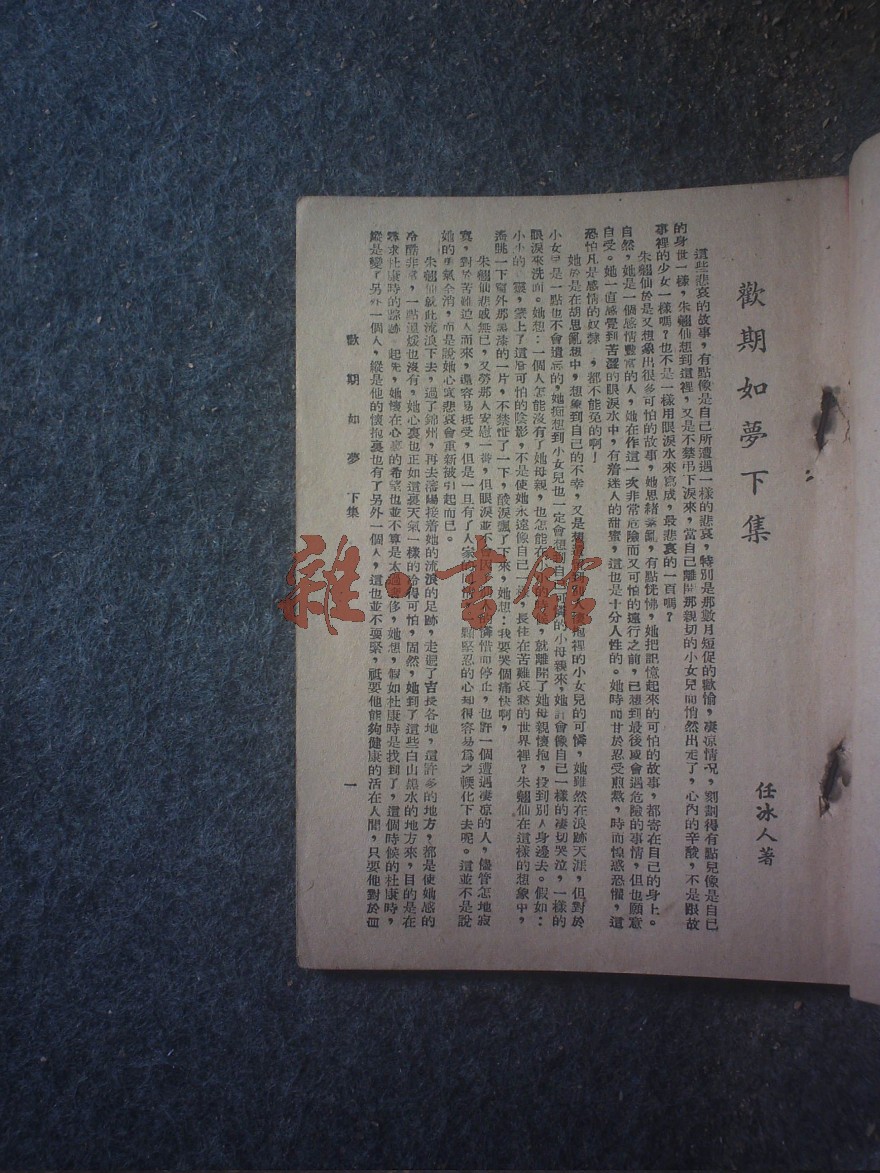 歡期如夢下集
任冰人著
這些悲哀的故事，有點像是自己所遭遇一樣的悲哀，特別是那數月短促的歡愉，凄凉情况，刻劃得有點兒像是自己
的身世一樣，朱翹仙想到這裡，又是不禁弔下淚來，當自己離開那親切的小女兒而悄然出走了，心內的辛酸，不是跟故
事裡的少女一樣嗎？也不是一樣用眼淚水來寫成，最悲哀的一頁嗎？
朱翹仙於是又想象出很多可怕的故事，她思緒紊亂，有點恍惚，她把記憶起來的可怕的故事，都寄在自己的身上。
自然，她是一個感情豐富的人，她在作這一次非常危險而又可怕的遠行之前，已想到最後或會遇危險的事情，但也願意
自受。她一直感覺到苦澀的眼淚水中，有着迷人的甜蜜，這也是十分人性的。她時而甘於忍受煎熬，時而惶惑恐懼，這
恐怕凡是感情的奴隸，都不能免的啊！
她於是在胡思亂想中，想象到自己的不幸，又是想着到別人懷抱裡的小女兒的可憐，她雖然在浪跡天涯，但對於
小女兒是一點也不會遺忘的，她痴想到小女兒也一定會想到自己可憐的小母親來，她許會像自己一樣的凄切哭泣，一樣的
眼淚來洗面。她想：一個人怎能沒有了她母親，也怎能在，就離開了她母親懷抱，投到別人身邊去。假如：
小小的心靈，蒙上了這層可怕的陰影，不是使她永遠像自己一樣，長住在苦難哀愁的世界裡？朱翹仙在這樣的想象中，
遙眺一下窗外那黑漆的一片，不禁怔了一下，酸淚飄了下來，她想：我要哭個痛快啊，
朱翹仙悲慼無已，又勞那人安慰一番，但眼淚並不會因人的憐惜而停止，也許一個遭遇凄凉的人，儘管怎地寂
寞，對於苦難迫人而來，還容易抵受，但是一旦有了人家的同情，一顆堅忍的心却很容易為之輭化下去呢。這並不是說
她的勇氣全消，而是說她心裏悲哀會重新被引起而已。
朱翹仙就此流浪下去，過了錦州，再去瀋陽接着她的流浪的足跡，走遍了吉長各地，這許多的地方，都是使她感的
冷酷非常，一點溫煖也沒有，她心裏也正如這裏天氣一樣的冷得可怕，固然，她到了這些白山黑水的地方來，目的是在
尋求杜康時的踪跡。起先，她懷在心裏的希望也並不算是太過奢侈，她想，假如杜康時是找到了，這個時候的杜康時，
縱是變了另外一個人，縱是他的懷抱裏也有了另外一個人，這也並不要緊，祇要他能夠健康的活在人間，只要他對於四
歡期如夢 下集
一
雜·書館